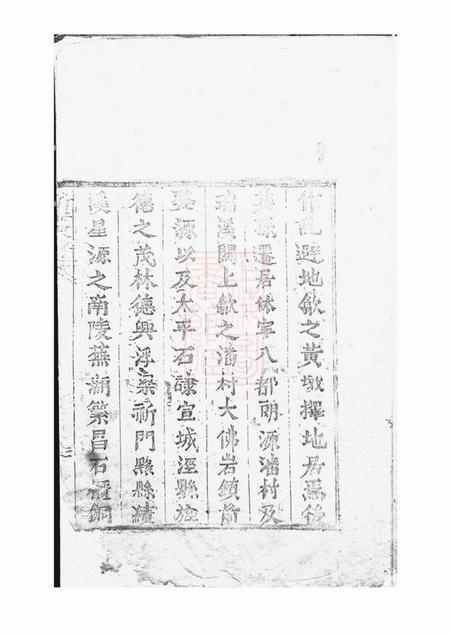 作亂避地歙之黃墩擇地居焉後
其孫遷居休寧八都明源潘村及
瑞溪閣上歙之潘村大佛岩鎮前
婺源以及太平石埭宣城涇縣旌
德之茂林德興浮梁祈門黟縣績
溪星源之南陵蕪湖繁昌石埭銅